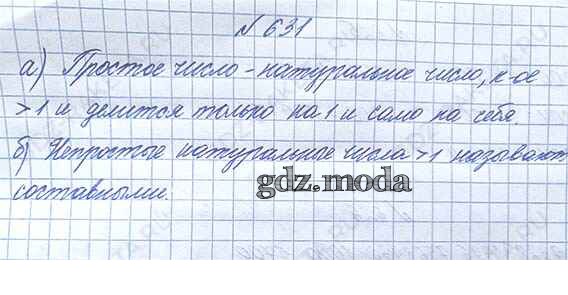 № 631
а) Простое число - натуральное число, к-ое
>1 и делится только на 1 и само на себя.
б) Непростые натуральные числа >1 называют
составными.
gdz.moda